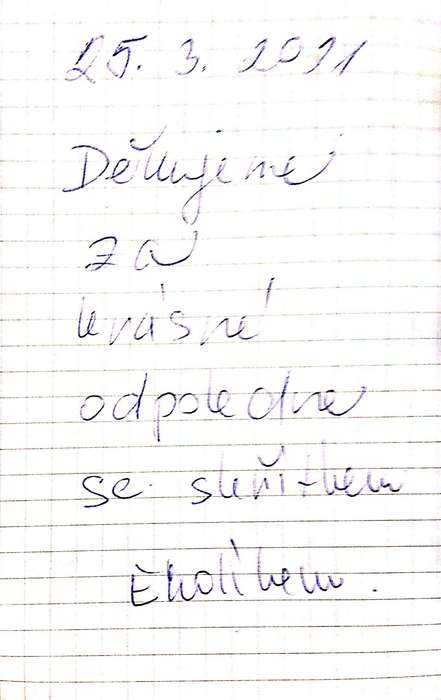 25. 3. 2021
Děkujeme
za
krásné
odpoledne
se skřítkem
Ekolíkem.